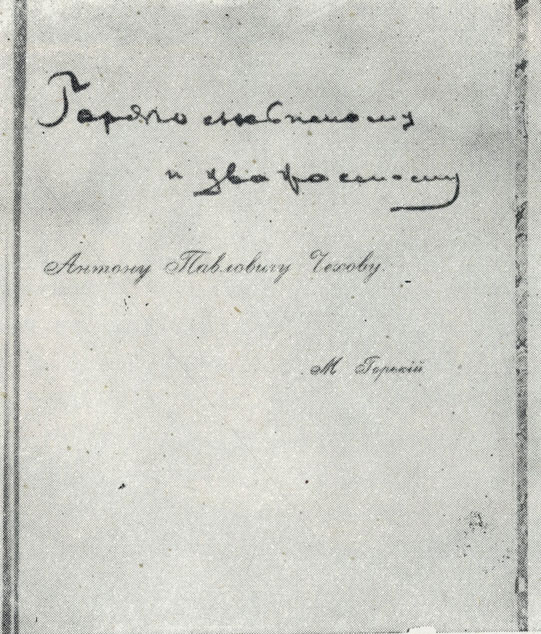 Горячо любимому
и уважаемому
Антону Павловичу Чехову.
М Горькій